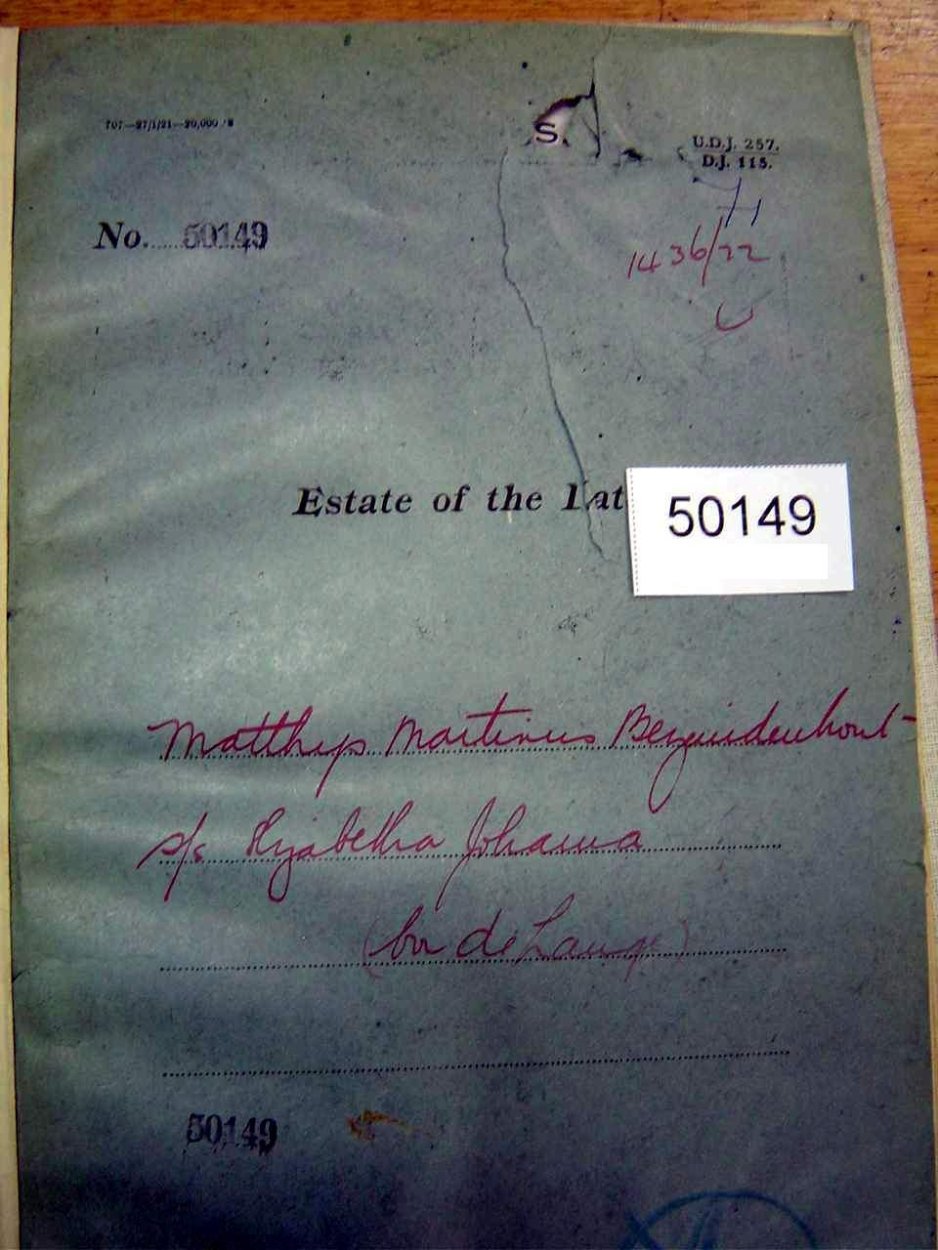 707—27/1/21—20,000 S
S.
U.D.J. 257.
D.J. 115.
71
No. 50149
1436/22
Estate of the Lat
50149
Matthys Martinus Bezuidenhout
s/s Elizabetha Johanna
(bn de Lange)
50149